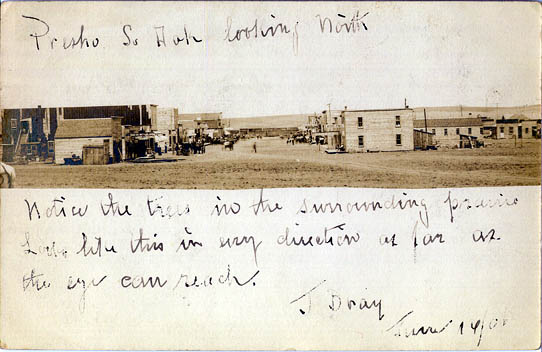 Presho So Dak looking North
Notice the trees in the surrounding prairie
Looks like this in every direction as far as
the eye can reach.
J Dray
June